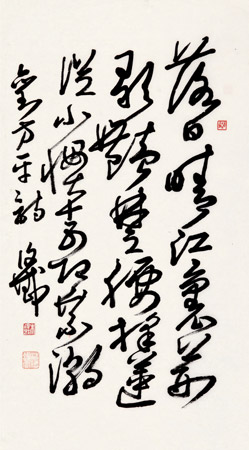 落日晴江裏荆
歌豔楚腰採蓮
從小慣十五即乘潮
劉方平詩